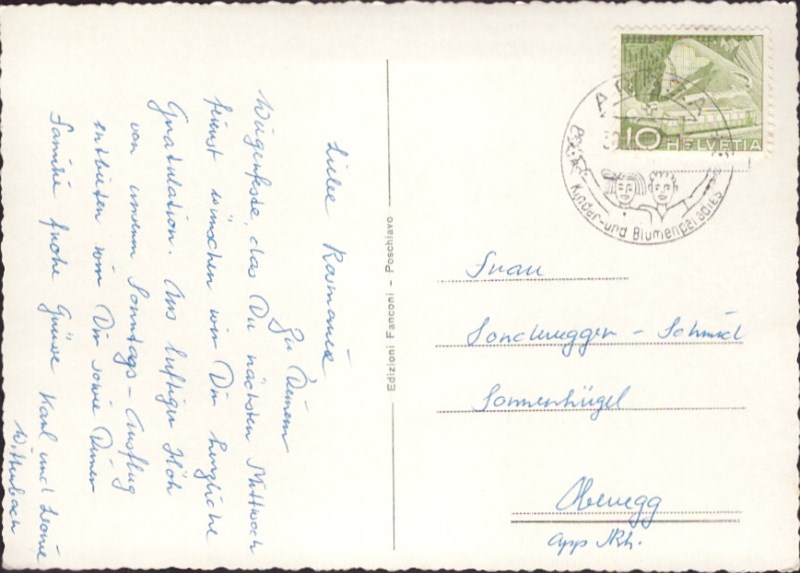 Liebe Rosmarie
Zu Deinem
Wiegenfeste, das Du nächsten Mittwoch
feierst wünschen wir Dir herzliche
Gratulation. Aus luftiger Höh
von unserm Sonntags-Ausflug
entbieten wir Dir sowie Deiner
Familie frohe Grüsse Karl und Leonie
Wittenbach
Edizioni Fanconi - Poschiavo
AROSA
10 HELVETIA
Kinder- und Blumenparadies
Frau
Sonderegger - Schmid
Sonnenhügel
Oberegg
App IRh.